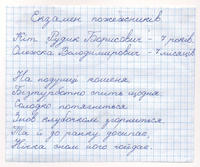 Екзамен пожежників
Кіт Рудик Борисович - 7 років
Олежка Володимирович - 7 місяців
На подушці кошеня
Безтурботно спить щодня.
Солодко потягнеться
Знов клубочком згорнеться
Та й до ранку досипає,
Нічка сном його гойдає.